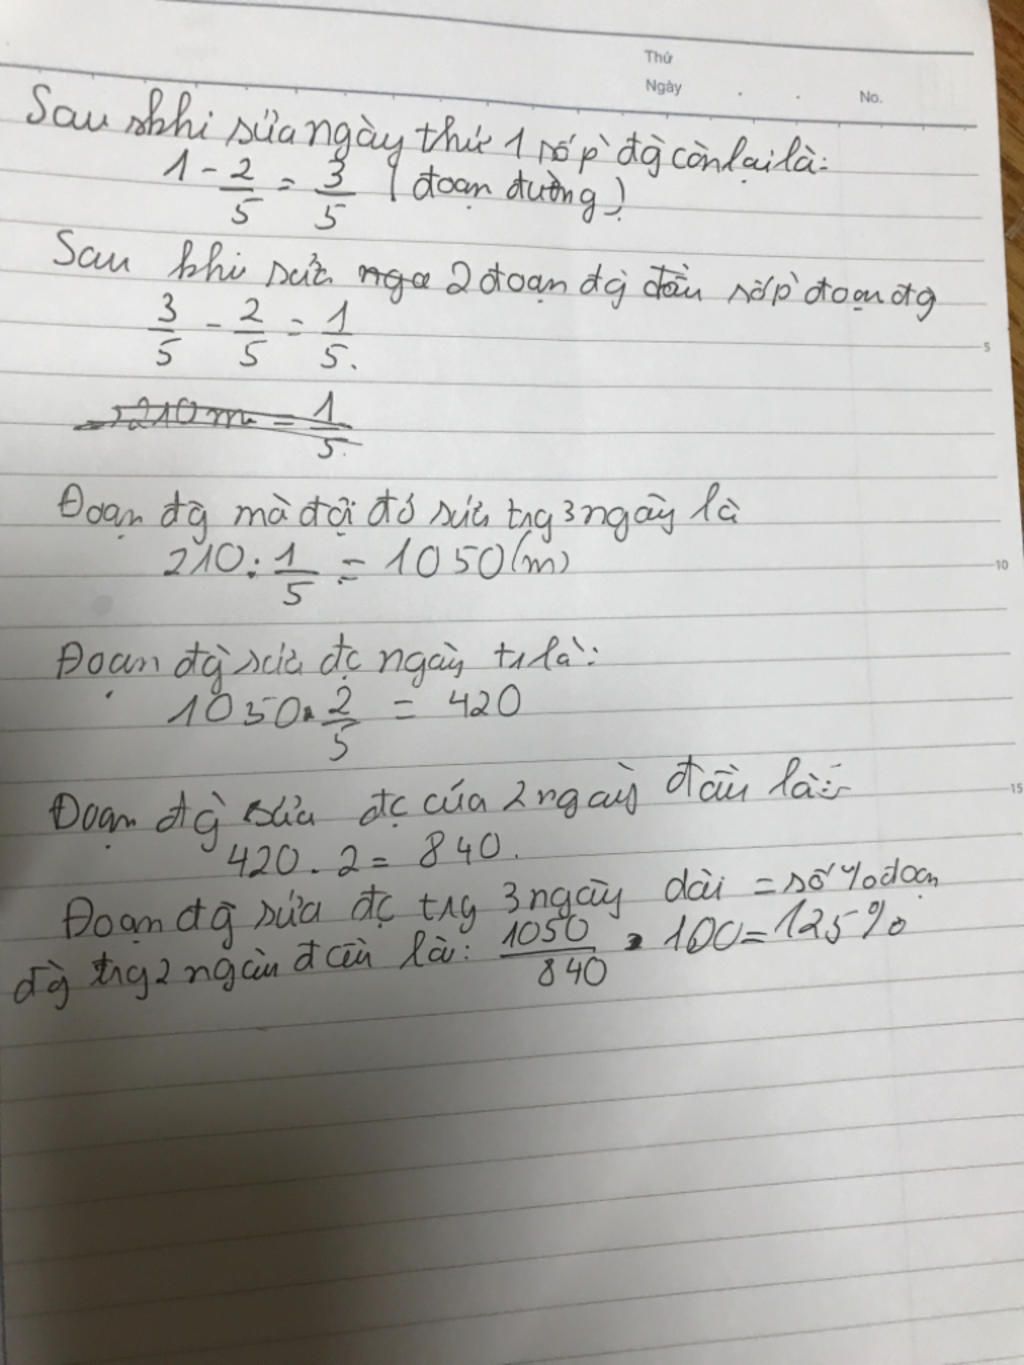 Thứ
Ngày . . No.
Sau khi sửa ngày thứ 1 số p đg còn lại là:
1 - 2/5 = 3/5 (đoạn đường)
Sau khi sửa 2 đoạn đg đầu số p đoạn đg
3/5 - 2/5 = 1/5.
5
210m = 1/5.
Đoạn đg mà đội đó sửa trg 3 ngày là
210 : 1/5 = 1050 (m)
10
Đoạn đg sửa đc ngày t1 là:
1050 . 2/5 = 420
Đoạn đg sửa đc của 2 ngày đầu là:
15
420 . 2 = 840.
Đoạn đg sửa đc trg 3 ngày dài = số % đoạn
đg trg 2 ngày đầu là: 1050/840 . 100 = 125%